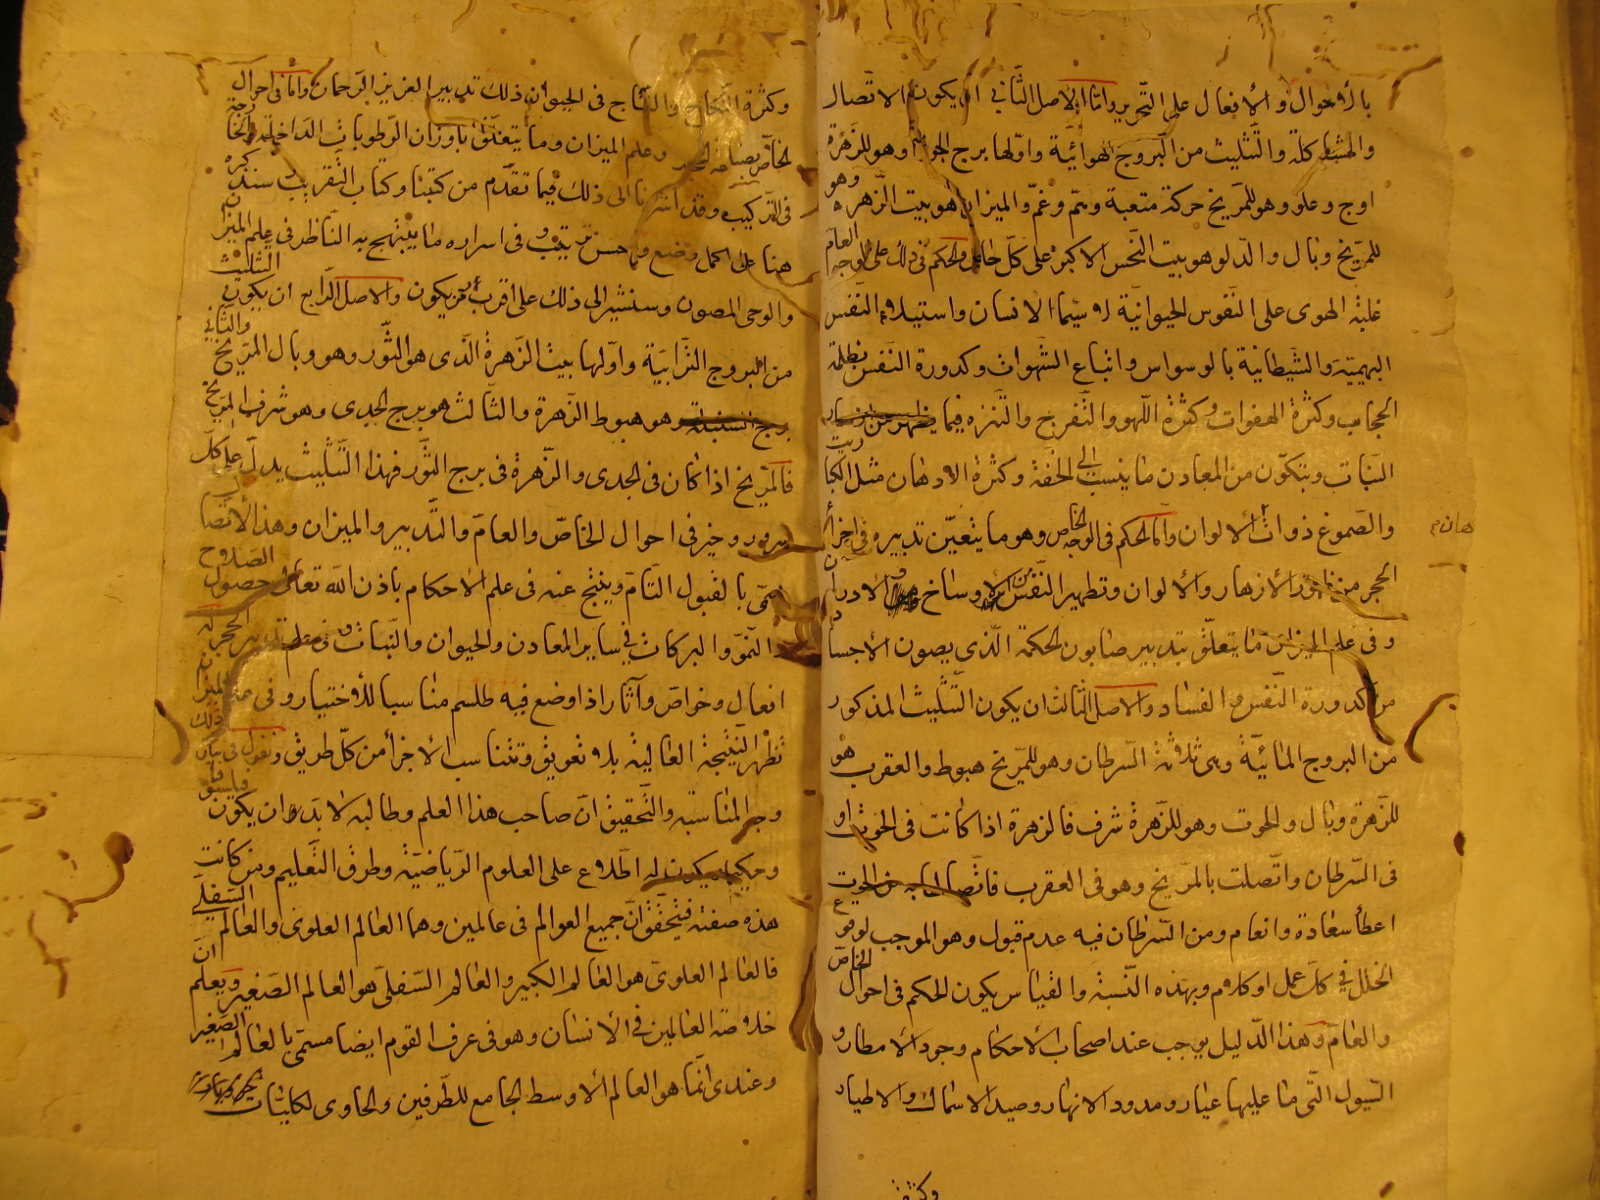 بالأحوال والأفعال على التحرير واما الاصل الثاني ان يكون الاتصال
والمشاكلة والتثليث من البروج الهوائية واولها برج الجوزا وهو للزهرة
اوج وعلو وهو للمريخ حركة متعبة وهم وغم والميزان هو بيت الزهرة وهو
للمريخ وبال والدلو هو بيت النحس الاكبر على كل حال والحكم في ذلك على الوجه العام
غلبة الهوى على النفوس الحيوانية لا سيما الانسان واستيلاء النفس
البهيمية والشيطانية بالوسواس واتباع الشهوات وكدورة النفس بظلمة
الحجاب وكثرة الهفوات وكثرة اللهو والتفرج والتنزه فيما
النبات ويتكون من المعادن ما ينسب الى الخفة وكثرة الادهان مثل الكباريت
والصموغ ذوات الالوان واما الحكم في الوجه الخاص وهو ما يتعين تدبيره في اجزاء
الحجر من الازهار والالوان وتطهير النفس من الاوساخ والادران
وفي علم الميزان ما يتعلق بتدبير صابون الحكمة الذي يصون الاجساد
من كدورة النفس والفساد والاصل الثالث ان يكون التثليث المذكور
من البروج المائية وهي ثلاثة السرطان وهو للمريخ هبوط والعقرب هو
للزهرة وبال والحوت وهو للزهرة شرف فالزهرة اذا كانت في الحوت او
في السرطان واتصلت بالمريخ وهو في العقرب فاتصالها به من الحوت
اعطا سعادة وانعام ومن السرطان فيه عدم قبول وهو الموجب لوقوع
الخلل في كل عمل او كلام وبهذه النسبة والقياس يكون الحكم في احوال الخاص
والعام وهذا الدليل يوجب عند اصحاب الاحكام وجود الامطار و
السيول التي ما عليها عيار ومدود الانهار وصيد الاسماك والاطيار
وكثرة
هان م
وكثرة النكاح والنتاج في الحيوان ذلك تدبير العزيز الرحمان واما في احوال
الخاص بصناعة الحجر وعلم الميزان وما يتعلق باوزان الرطوبات الداخلة
في التركيب وقد اشرنا الى ذلك فيما تقدم من كتبنا وكتاب التقريب سنذكره
هنا على اكمل وضع وحسن ترتيب وفي اسراره ما يبتهج به الناظر في علم الميزان
والوحى المصون وسنشير الى ذلك على اقرب ما يكون والاصل الرابع ان يكون التثليث
من البروج الترابية واولها بيت الزهرة الذى هو الثور وهو وبال المريخ والثاني
برج السنبلة وهو هبوط الزهرة والثالث هو برج الجدى وهو شرف المريخ
فالمريخ اذا كان في الجدى والزهرة في برج الثور فهذا التثليث يدل على كل
سرور وخير في احوال الخاص والعام والتدبير والميزان وهذا الاتصال
سمى بالقبول التام وينتج عنه في علم الاحكام باذن الله تعالى حصول الصلاح
والنمو والبركات في ساير المعادن والحيوان والنبات وفي تدبير الحجر له
افعال وخواص وآثار اذا وضع فيه طلسم مناسبا للاختيار وفي
تظهر النتيجة العالية بلا تعويق وتتناسب الاجزا من كل طريق ونقول في بيان ذلك
وجه المناسبة والتحقيق ان صاحب هذا العلم وطالبه لا بد وان يكون
وحكيما ويكون له اطلاع على العلوم الرياضية وطرق التعليم ومن كانت
هذه صفته فيتحقق ان جميع العوالم في عالمين وهما العالم العلوى والعالم السفلي
فالعالم العلوى هو العالم الكبير والعالم السفلى هو العالم الصغير ويعلم ان
خلاصة العالمين في الانسان وهو في عرف القوم ايضا مسمى بالعالم الصغير
وعندى انما هو العالم الاوسط الجامع للطرفين والحاوى لكليات